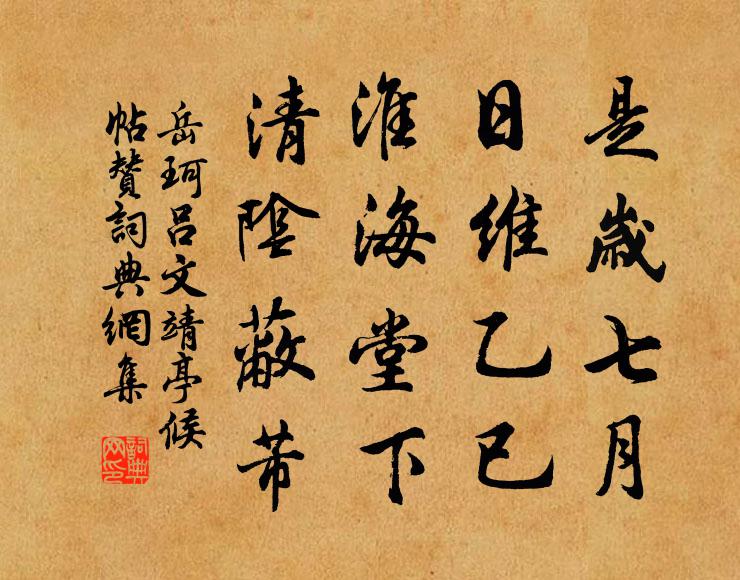 是歲七月
日維乙巳
淮海堂下
清陰蔽芾
岳珂呂文靖亭候
帖贊詞典網集